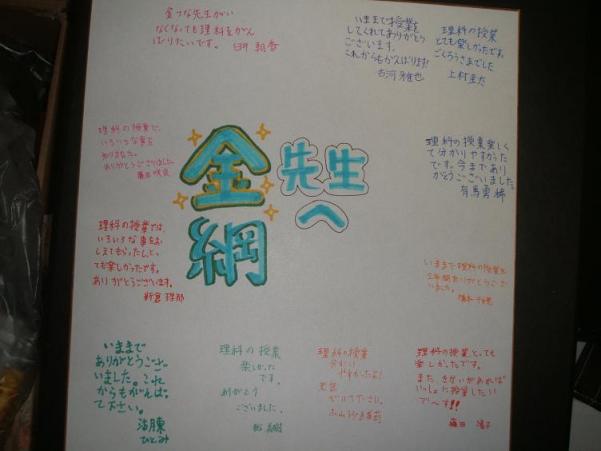 金つな先生がい
なくなっても理科をがん
ばりたいです。
いままで授業を
してくれてありがとう
ございます。
これからもがんばります!
古河 雅也
理科の授業
とても楽しかったです。
ごくろうさまでした
上村
理科の授業で、
いろいろな事を
ありがとうございました。
金綱
先生へ
理科の授業楽しく
て分かりやすかった
です。今まであり
がとうございました。
有馬勇
理科の授業では、
いろいろな事をお
しえてもらったんとっ
ても楽しかったです。
ありがとうございます。
新倉
いままで理科の授業を
ありがとうござ
いました。
いままで
ありがとうござ
いました。これ
からもがんばっ
て下さい。
ひとみ
理科の授業
楽しかった
です。
ありがとう
ございました。
理科の授業
分かり
やすかったよ!
理科の授業とっても
楽しかったです。
また、きかいがあれば
いっしょに授業したい
で〜す!!